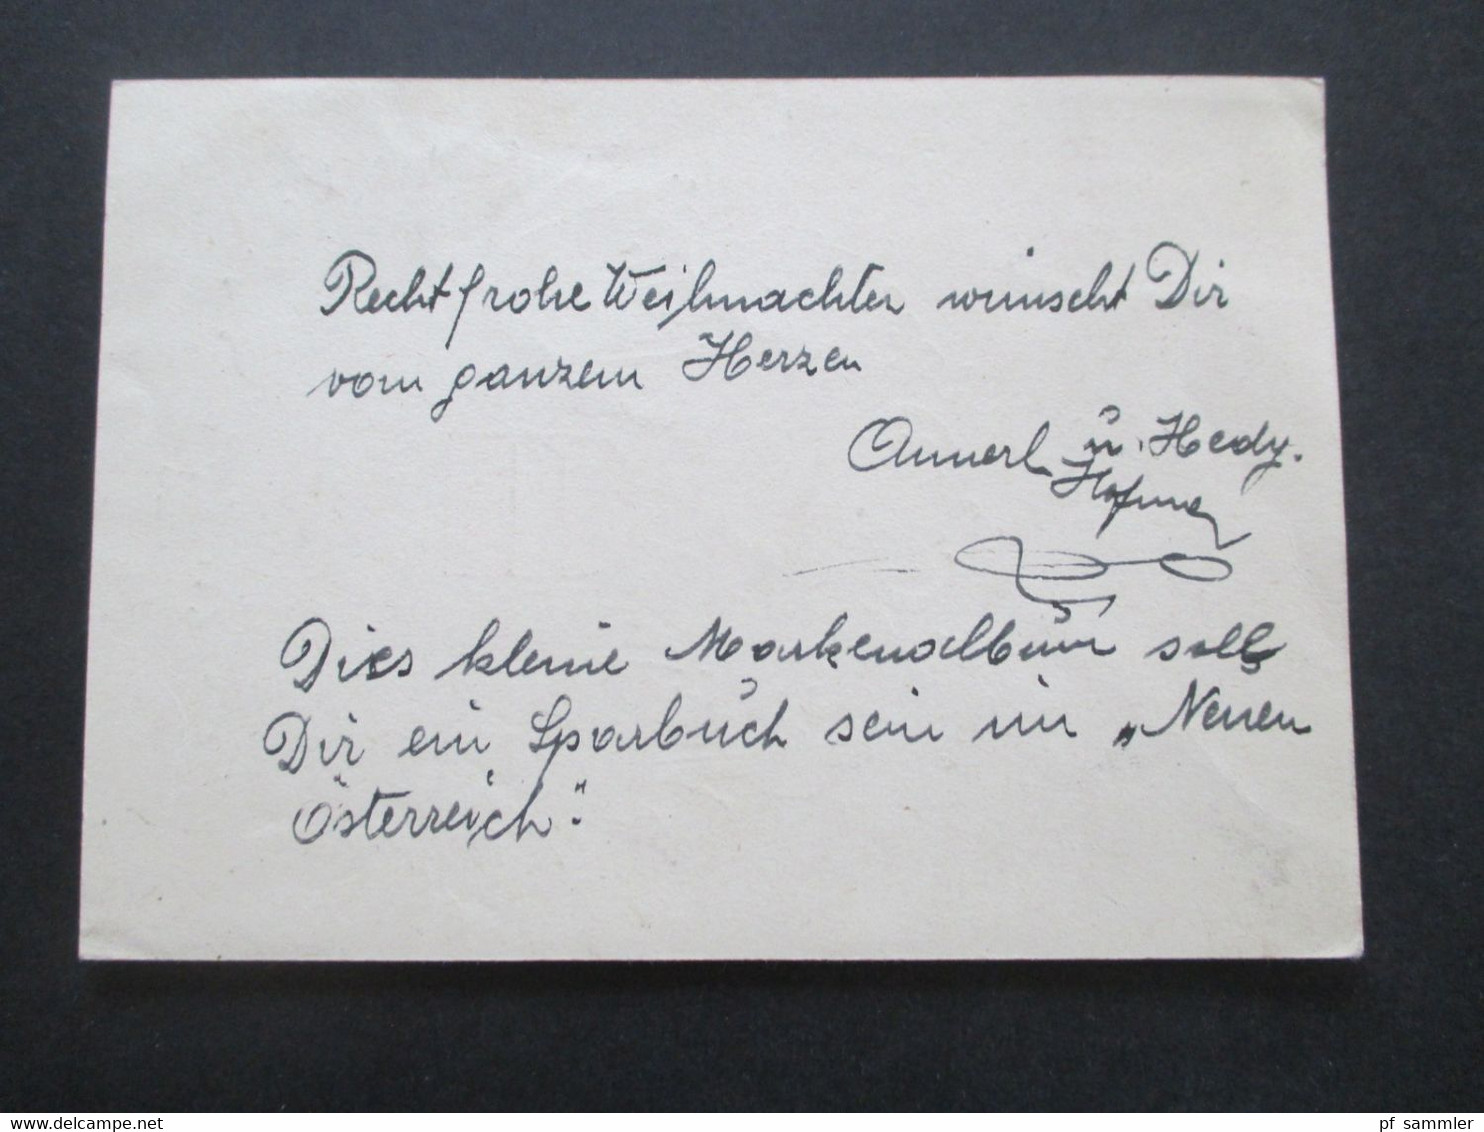 Recht frohe Weihnachten wünscht Dir
vom ganzem Herzen
Annerl u. Hedy.
Dies kleine Markenalbum soll
Dir ein Sparbuch sein im „Neuen
Österreich".
pf sammler